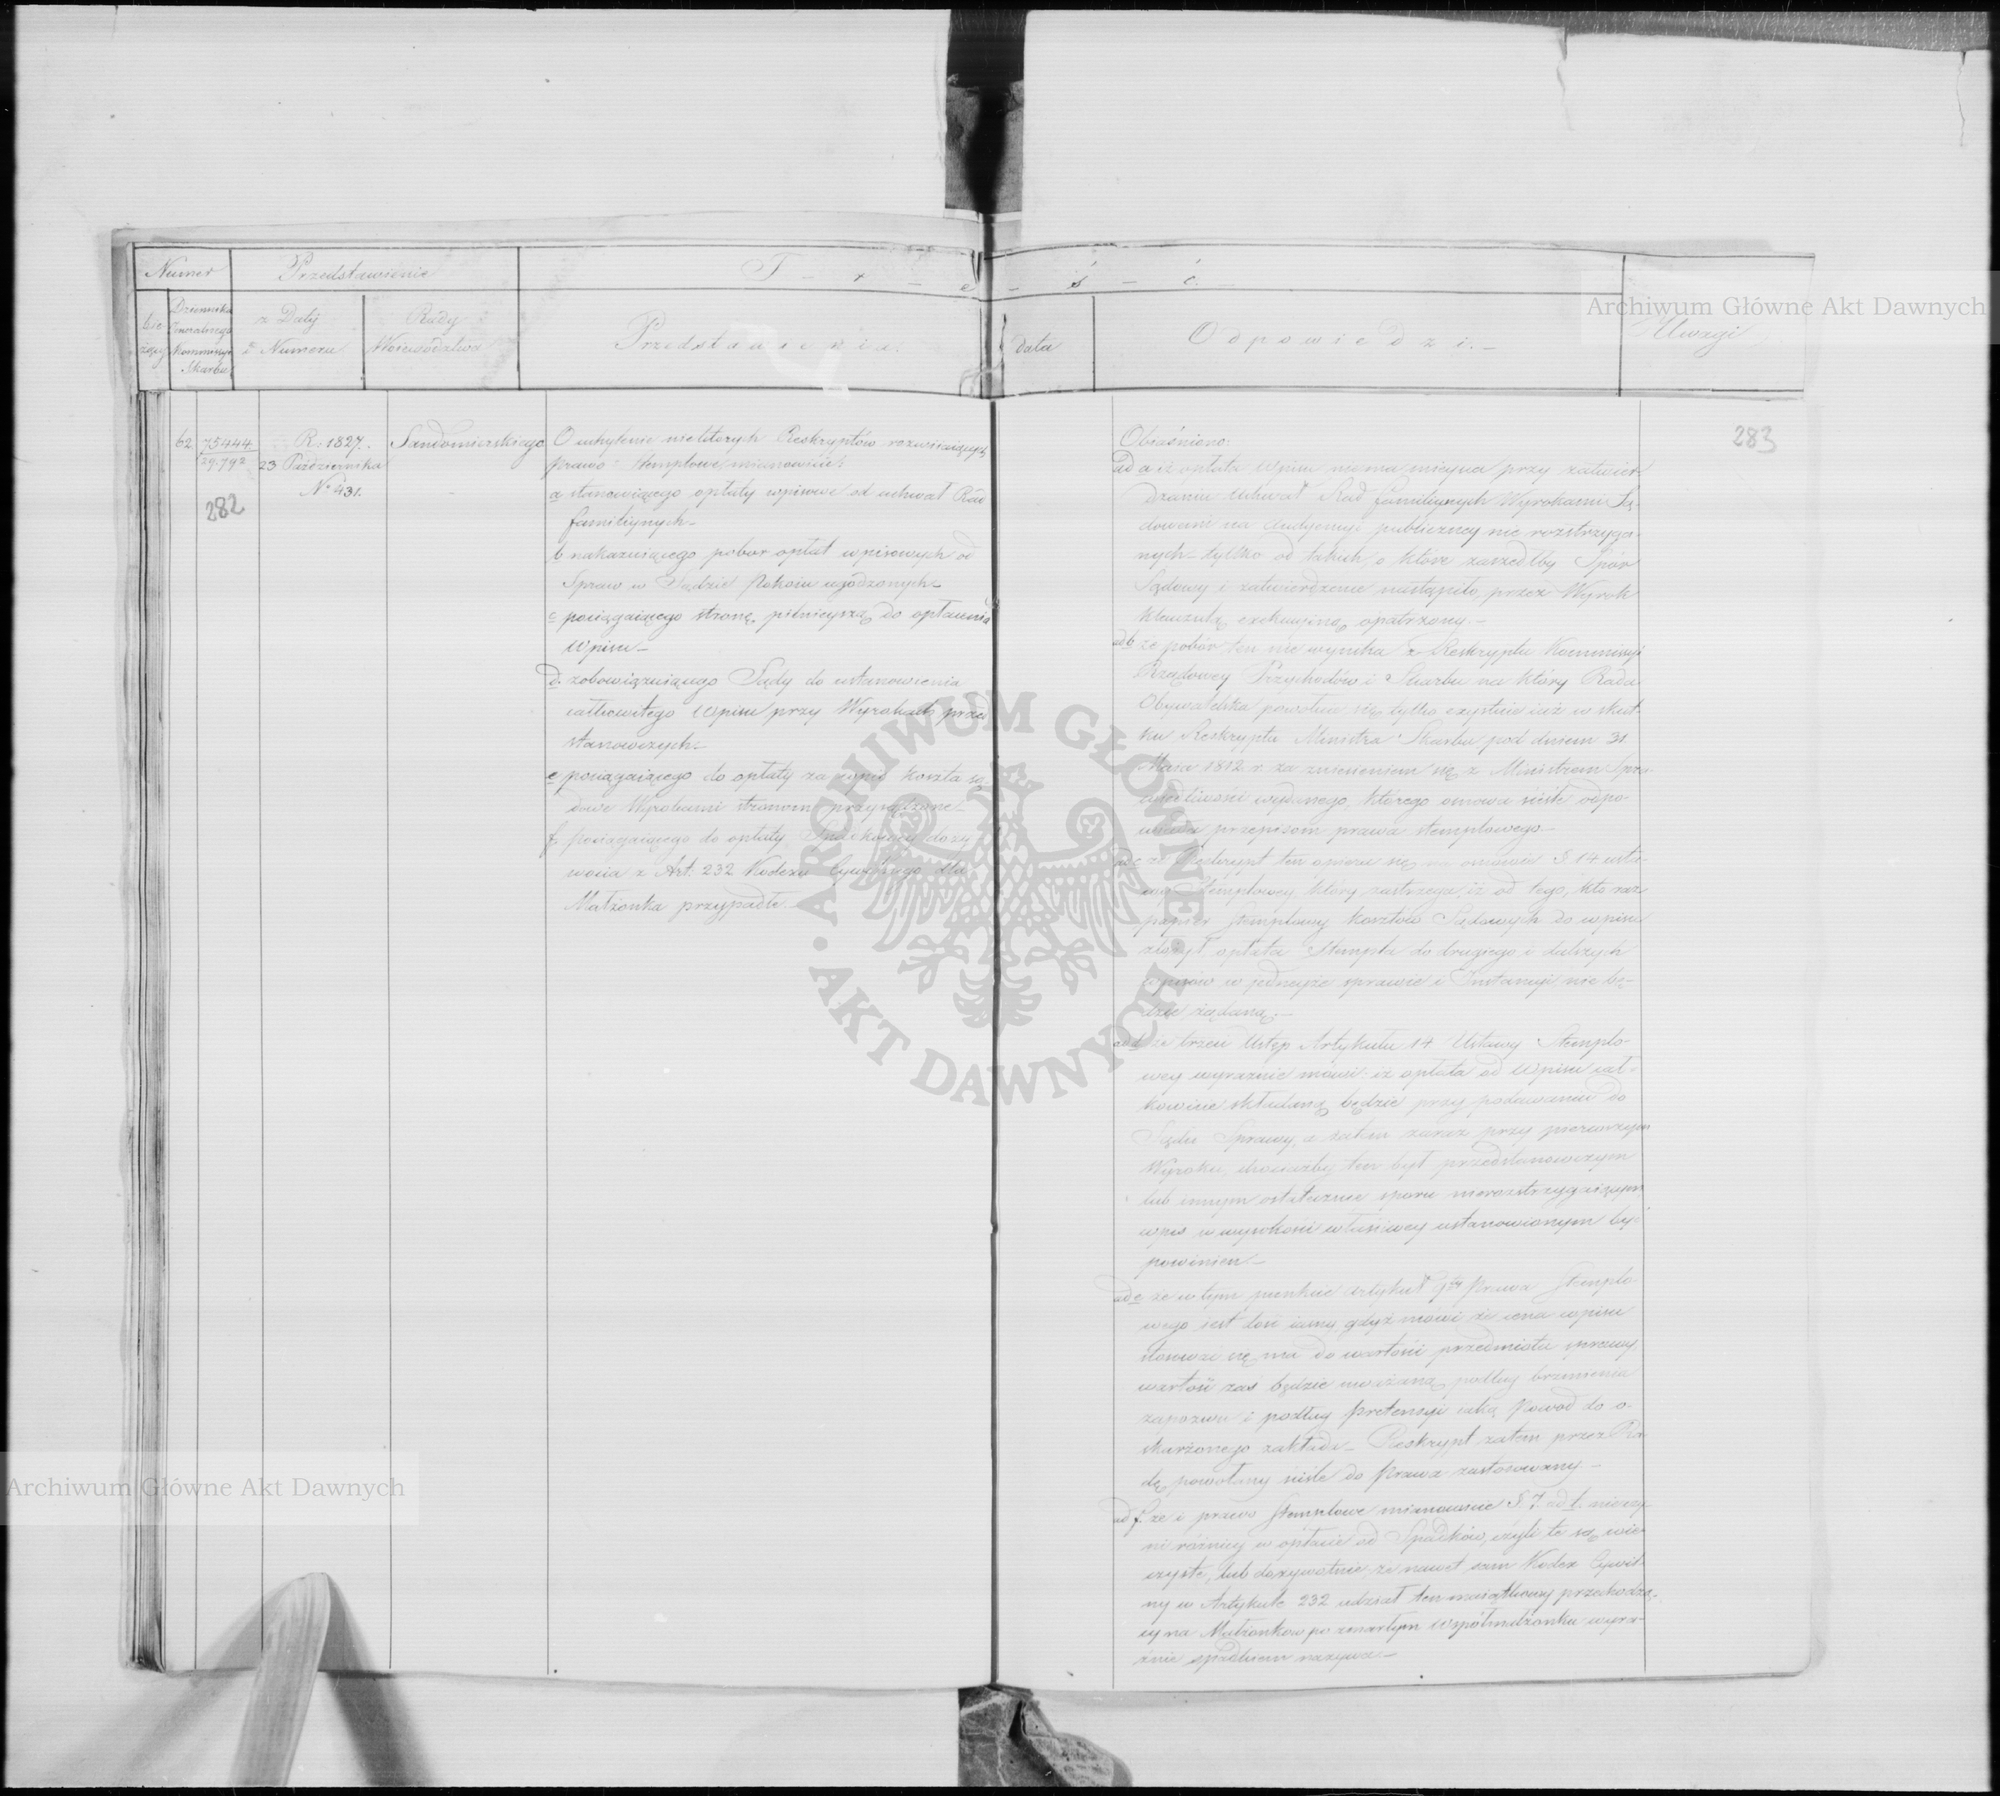 Numer
Przedstawienie
T - r - e - ś - ć. -
bie-
żący
Dziennika
Generalnego
Kommissyi
Skarbu
z Daty
i Numeru
Rady
Województwa
Przedstawienia.
data
Odpowiedzi. -
Uwagi
Archiwum Główne Akt Dawnych
62
75444
29.792
R. 1827.
23 Października
N. 431.
282
Sandomierskiego
O uchylenie niektórych Reskryptów rozwiiaiących
prawo stemplowe mianowicie:
a stanowiącego opłaty wpisowe od uchwał Rad
familiynych -
b nakazuiącego pobor opłat wpisowych od
Spraw w Sądzie Pokoiu ugodzonych -
c pociągaiącego stronę pilnieyszą do opłacenia
Wpisu -
d. zobowiązuiącego Sądy do ustanowienia
całkowitego Wpisu przy Wyrokach przed
stanowczych -
e pociągaiącego do opłaty za wpis koszta są-
dowe Wyrokami stronom przysądzone -
f pociągaiącego do opłaty Spadkowey doży
wocia z Art: 232 Kodexu Cywilnego dla
Małżonka przypadłe -
283
Obiaśniono:
ad a iż opłata Wpisu niema mieysca przy zatwier
dzaniu Uchwał Rad familiynych Wyrokami Są-
dowemi na Audyencyi publiczney nie rozstrzyga-
nych - tylko od takich, o które zaszedłby Spór
Sądowy i zatwierdzenie nastąpiło, przez Wyrok
klauzulą exekucyiną opatrzony. -
ad b że pobór ten nie wynika z Reskryptu Kommissyi
Rządowey Przychodów i Skarbu na który Rada
Obywatelska powołuie się tylko exystuie iuż w skut-
ku Reskryptu Ministra Skarbu pod dniem 31
Maia 1812 r. za zniesieniem się z Ministrem Spra-
wiedliwości wydanego, którego osnowa ściśle odpo-
wiada przepisom prawa stemplowego -
ad c że Reskrypt ten opiera się na osnowie § 14 usta-
wy Stemplowey, który zastrzega, iż od tego, kto raz
papier stemplowy kosztów Sądowych do wpisu
złożył opłata Stempla do drugiego i dalszych
wpisów w iedneyże sprawie i Instancyi nie bę-
dzie żądaną. -
ad d że trzeci Ustęp Artykułu 14 Ustawy Stemplo-
wey wyraźnie mówi iż opłata od Wpisu cał-
kowicie składaną będzie przy podawaniu do
Sądu Sprawy, a zatem zaraz przy pierwszym
Wyroku, chociażby ten był przedstanowczym
lub innym ostatecznie sporu nierozstrzygaiącym
wpis w wysokości właściwey ustanowionym być
powinien -
ad e że w tym punkcie Artykuł 9ty Prawa Stemplo-
wego iest dość iasny, gdyż mówi że cena wpisu
stosować się ma do wartości przedmiotu sprawy,
wartość zaś będzie uważaną podług brzmienia
zapozwu i podług pretensyi iaką Powód do o-
skarżonego zakłada - Reskrypt zatem przez Ra-
dę powołany ściśle do Prawa zastosowany -
ad f. że i prawo Stemplowe mianowicie § 7. ad b. nieczy-
ni różnicy w opłacie od Spadków, czyli te są wie-
czyste, lub dożywotnie że nawet sam Kodex Cywil-
ny w Artykule 232 udział ten maiątkowy przechodzą-
cy na Małżonków po zmarłym Współmałżonku wyra-
źnie spadkiem nazywa. -
ARCHIWUM GŁÓWNE · AKT DAWNYCH ·
Archiwum Główne Akt Dawnych